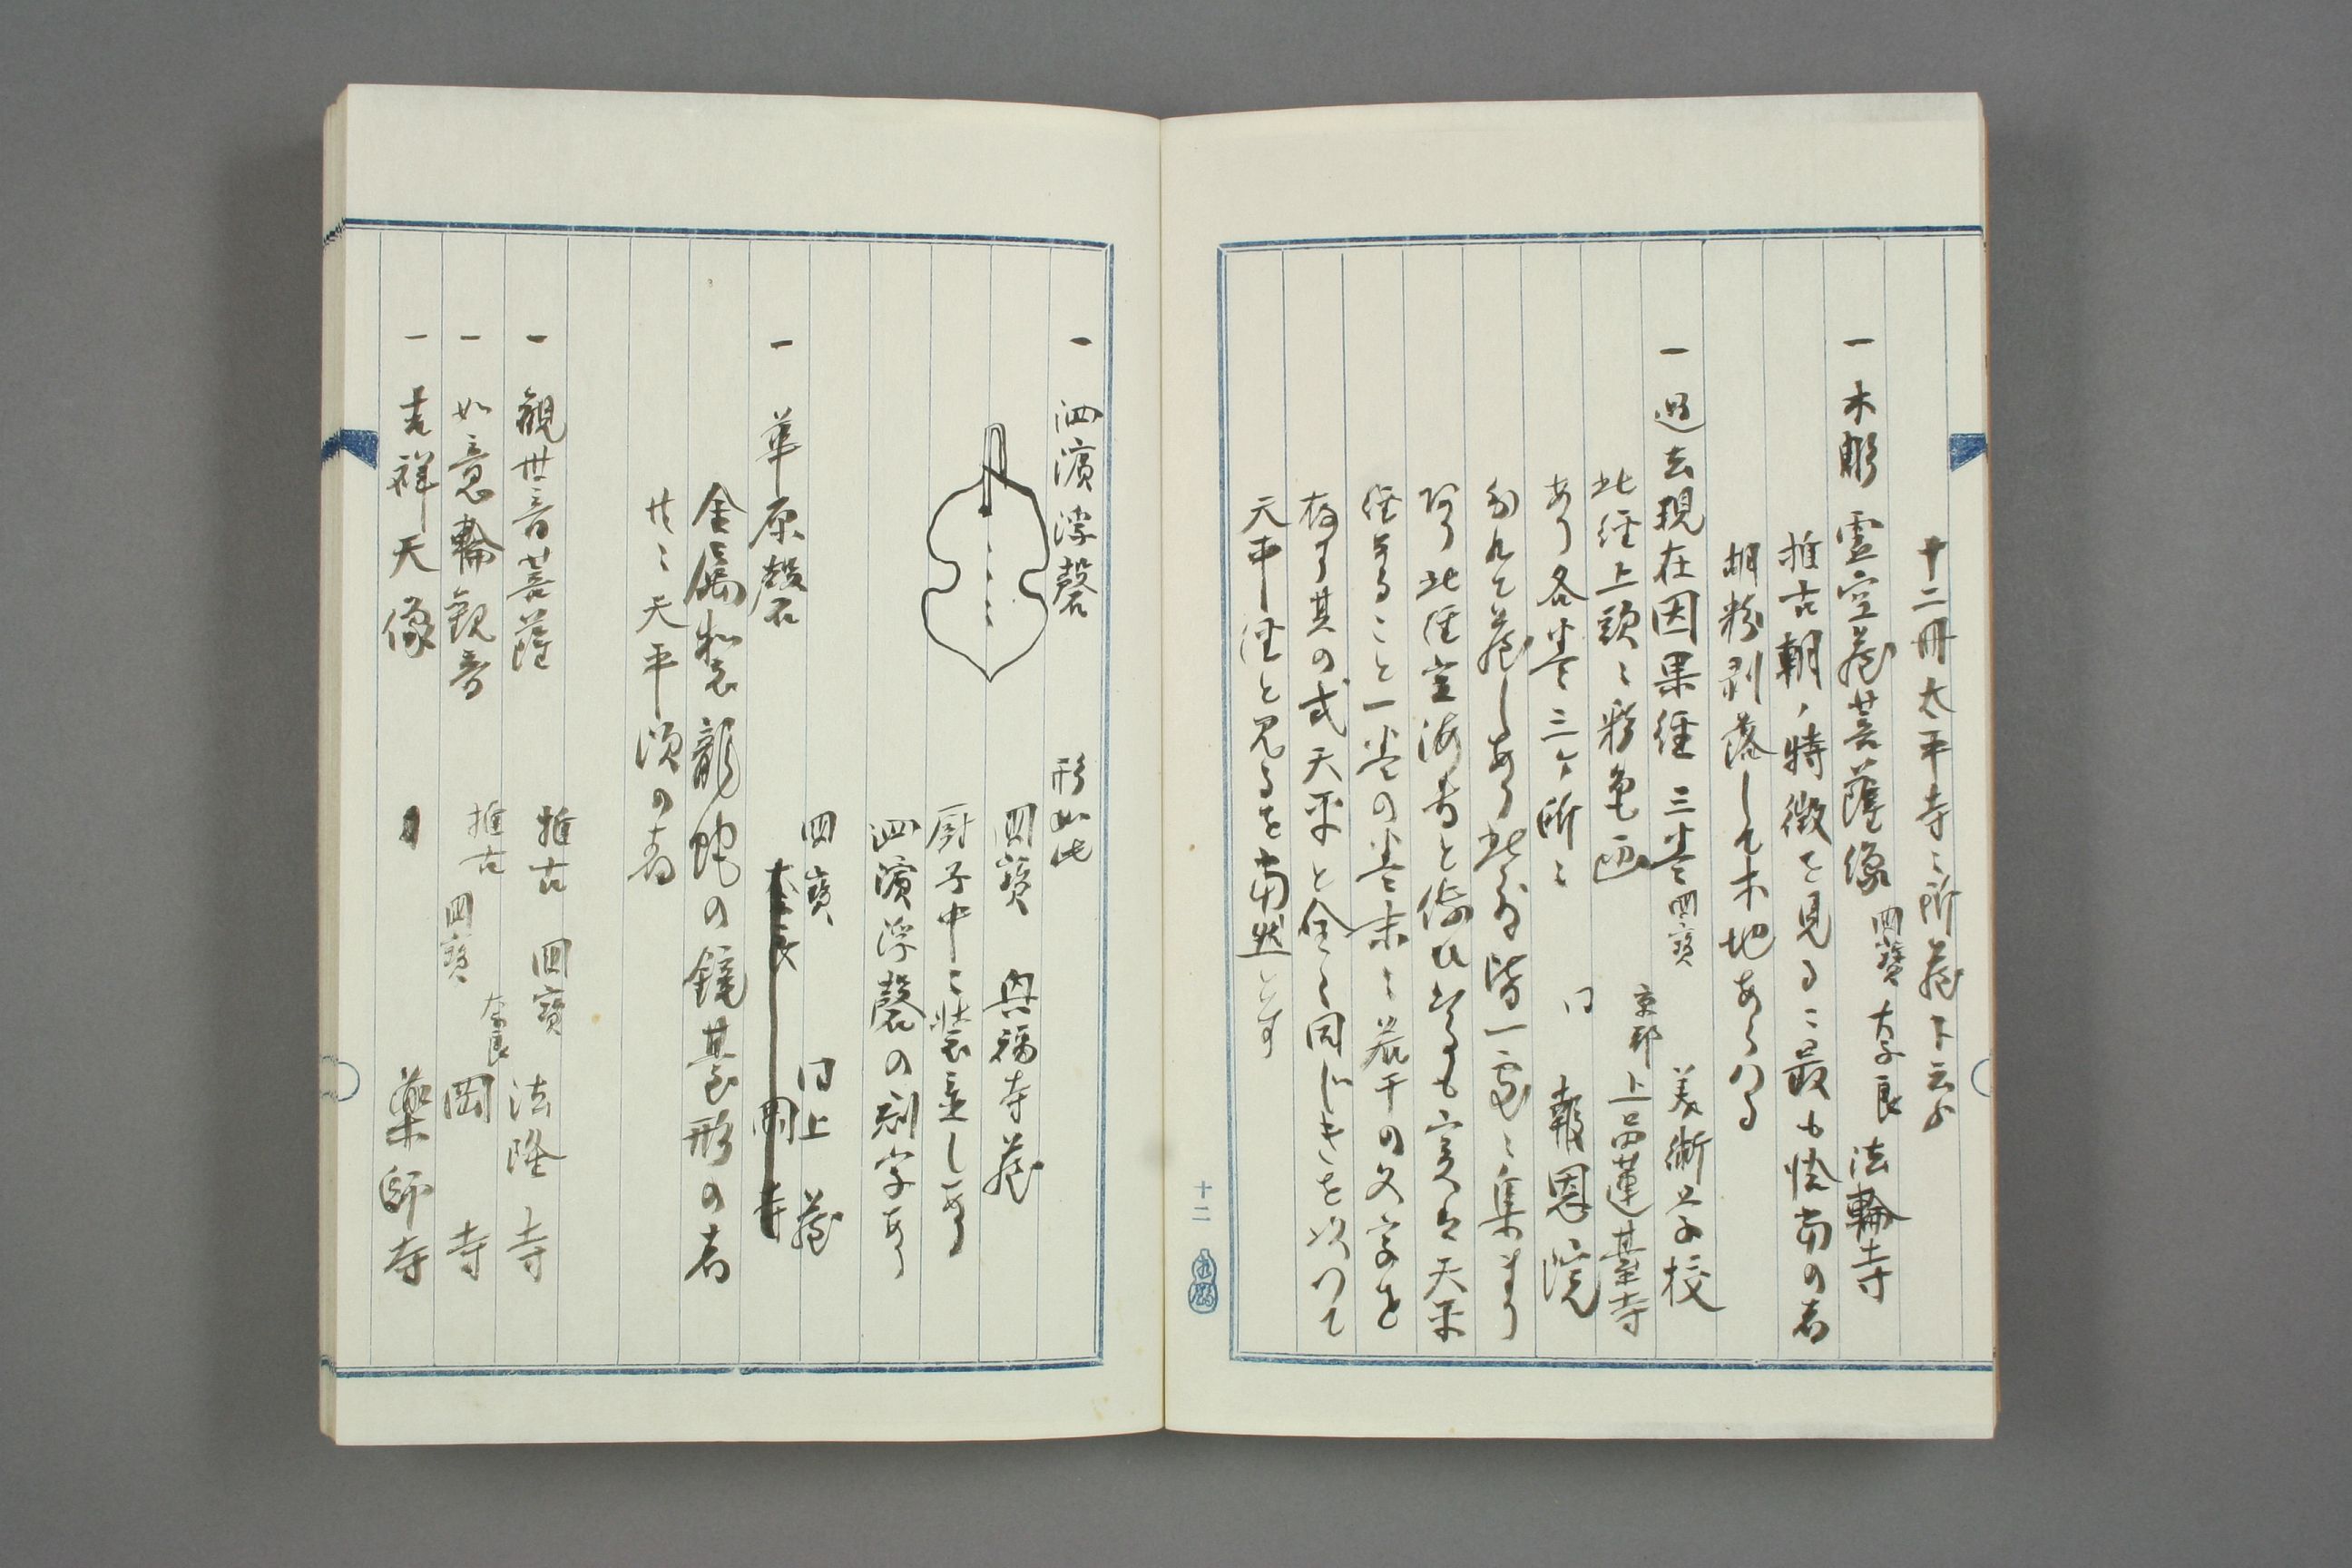 十二冊太平寺ニ所蔵ト云ふ
一 木彫 虚空蔵菩薩像 国寳 奈良 法輪寺
推古朝ノ特徴を見るに最も恰当の者
胡粉剥落して木地あらはる
一 過去現在因果経 三巻 国寳 美術学校
京都 上品蓮臺寺
此経上頭ニ彩色画
あり各巻三ヶ所ニ 同 報恩院
分れて蔵しあり 皆一處ニ集まり
此経空海書と伝ひ 天平
経なること一巻の巻末ニ若干の文字を
存す其の式天平と全く同じきを以つて
天平経と見るを当然とす
一 泗濱浮磬 形如此
国寳 興福寺蔵
厨子中ニ装立しあり
泗濱浮磬の刻字あり
国寳 同上蔵
一 華原磬
金属製龍蛇の鏡臺形の者
共ニ天平頃の者
一 観世音菩薩 推古 国寳 法隆寺
一 如意輪観音 推古 国寳 奈良 岡寺
一 吉祥天像 薬師寺
十二